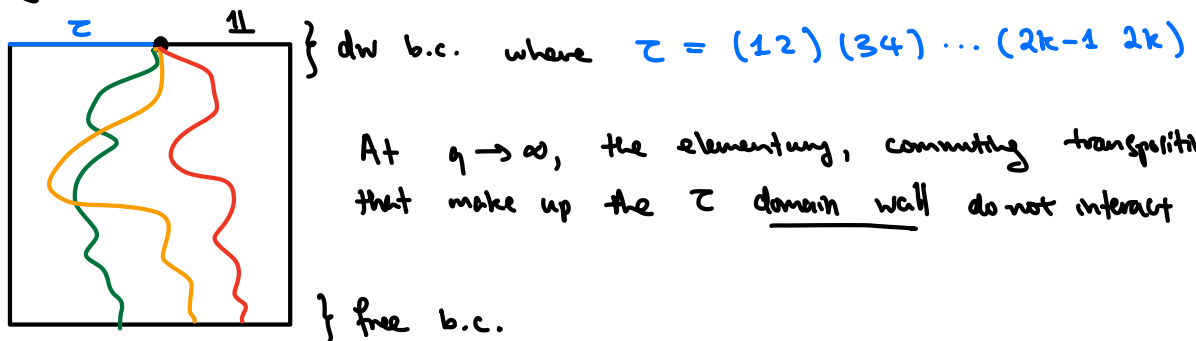 τ 𝟙 } dw b.c. where τ = (12)(34) ··· (2k-1 2k)
At q → ∞, the elementary, commuting
that make up the τ domain wall do not interact
} free b.c.